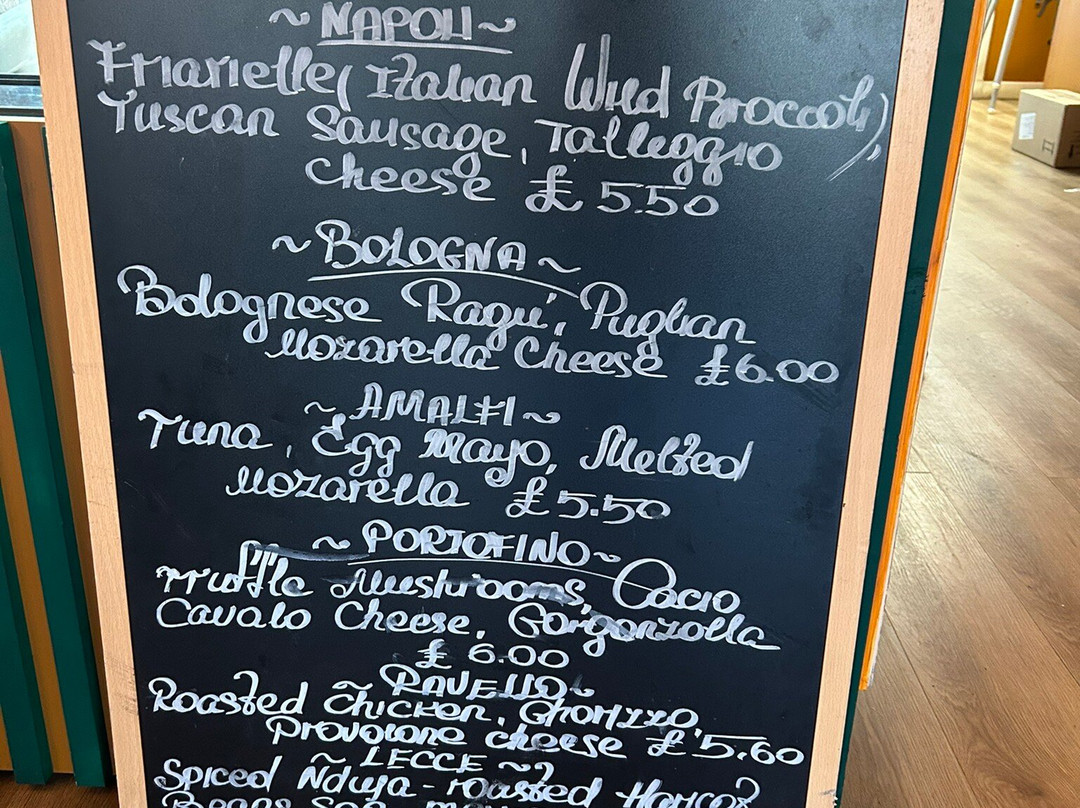 ~ NAPOLI ~
Friarielle (Italian Wild Broccoli)
Tuscan Sausage, Talleggio
Cheese £5.50
~ BOLOGNA ~
Bolognese Ragú, Puglian
Mozarella Cheese £6.00
~ AMALFI ~
Tuna, Egg Mayo, Melted
Mozarella £5.50
~ PORTOFINO ~
Truffle Mushrooms, Cacio
Cavalo Cheese, Gorgonzolla
£6.00
~ RAVELLO ~
Roasted Chicken, Chorizzo,
Provolone cheese £5.60
~ LECCE ~
Spiced Nduja-roasted Haricot
Beans